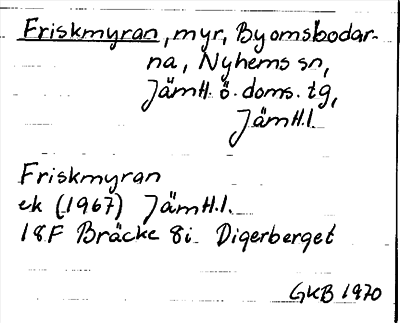 Friskmyran, myr, Byomsbodar-
na, Nyhems sn,
Jämtl. ö. doms. tg,
Jämtl.l.
Friskmyran
ek (1967) Jämtl.l.
18F Bräcke 8i Digerberget
GKB 1970